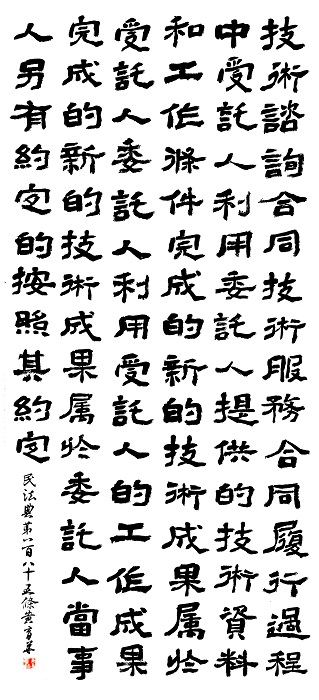 技術諮詢合同技術服務合同履行過程
中受託人利用委託人提供的技術資料
和工作條件完成的新的技術成果属於
受託人委託人利用受託人的工作成果
完成的新的技術成果属於委託人當事
人另有約定的按照其約定
民法典第八百八十五條黄